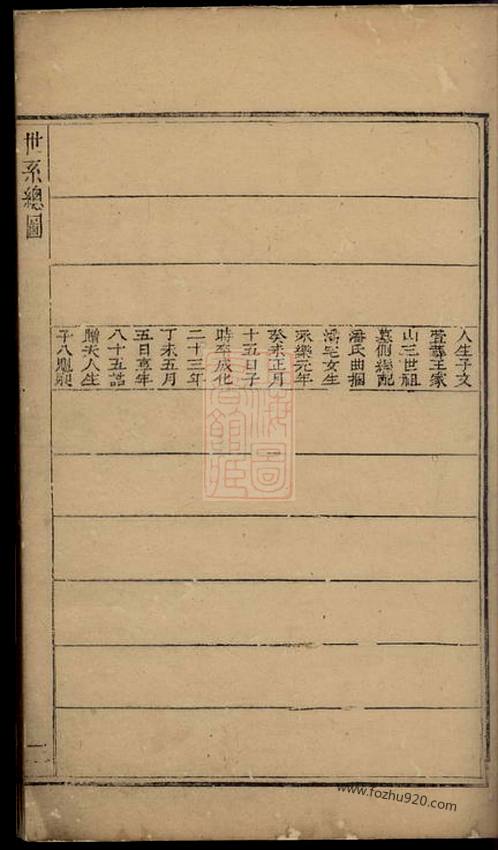 世系總圖
人生子文
萱葬王家
山三世祖
墓側繼配
潘氏曲搁
潘宅女生
永樂元年
癸未正月
十五日子
時卒成化
二十三年
丁未五月
五日享年
八十五誥
贈夫人生
子八
www.fozhu920.com